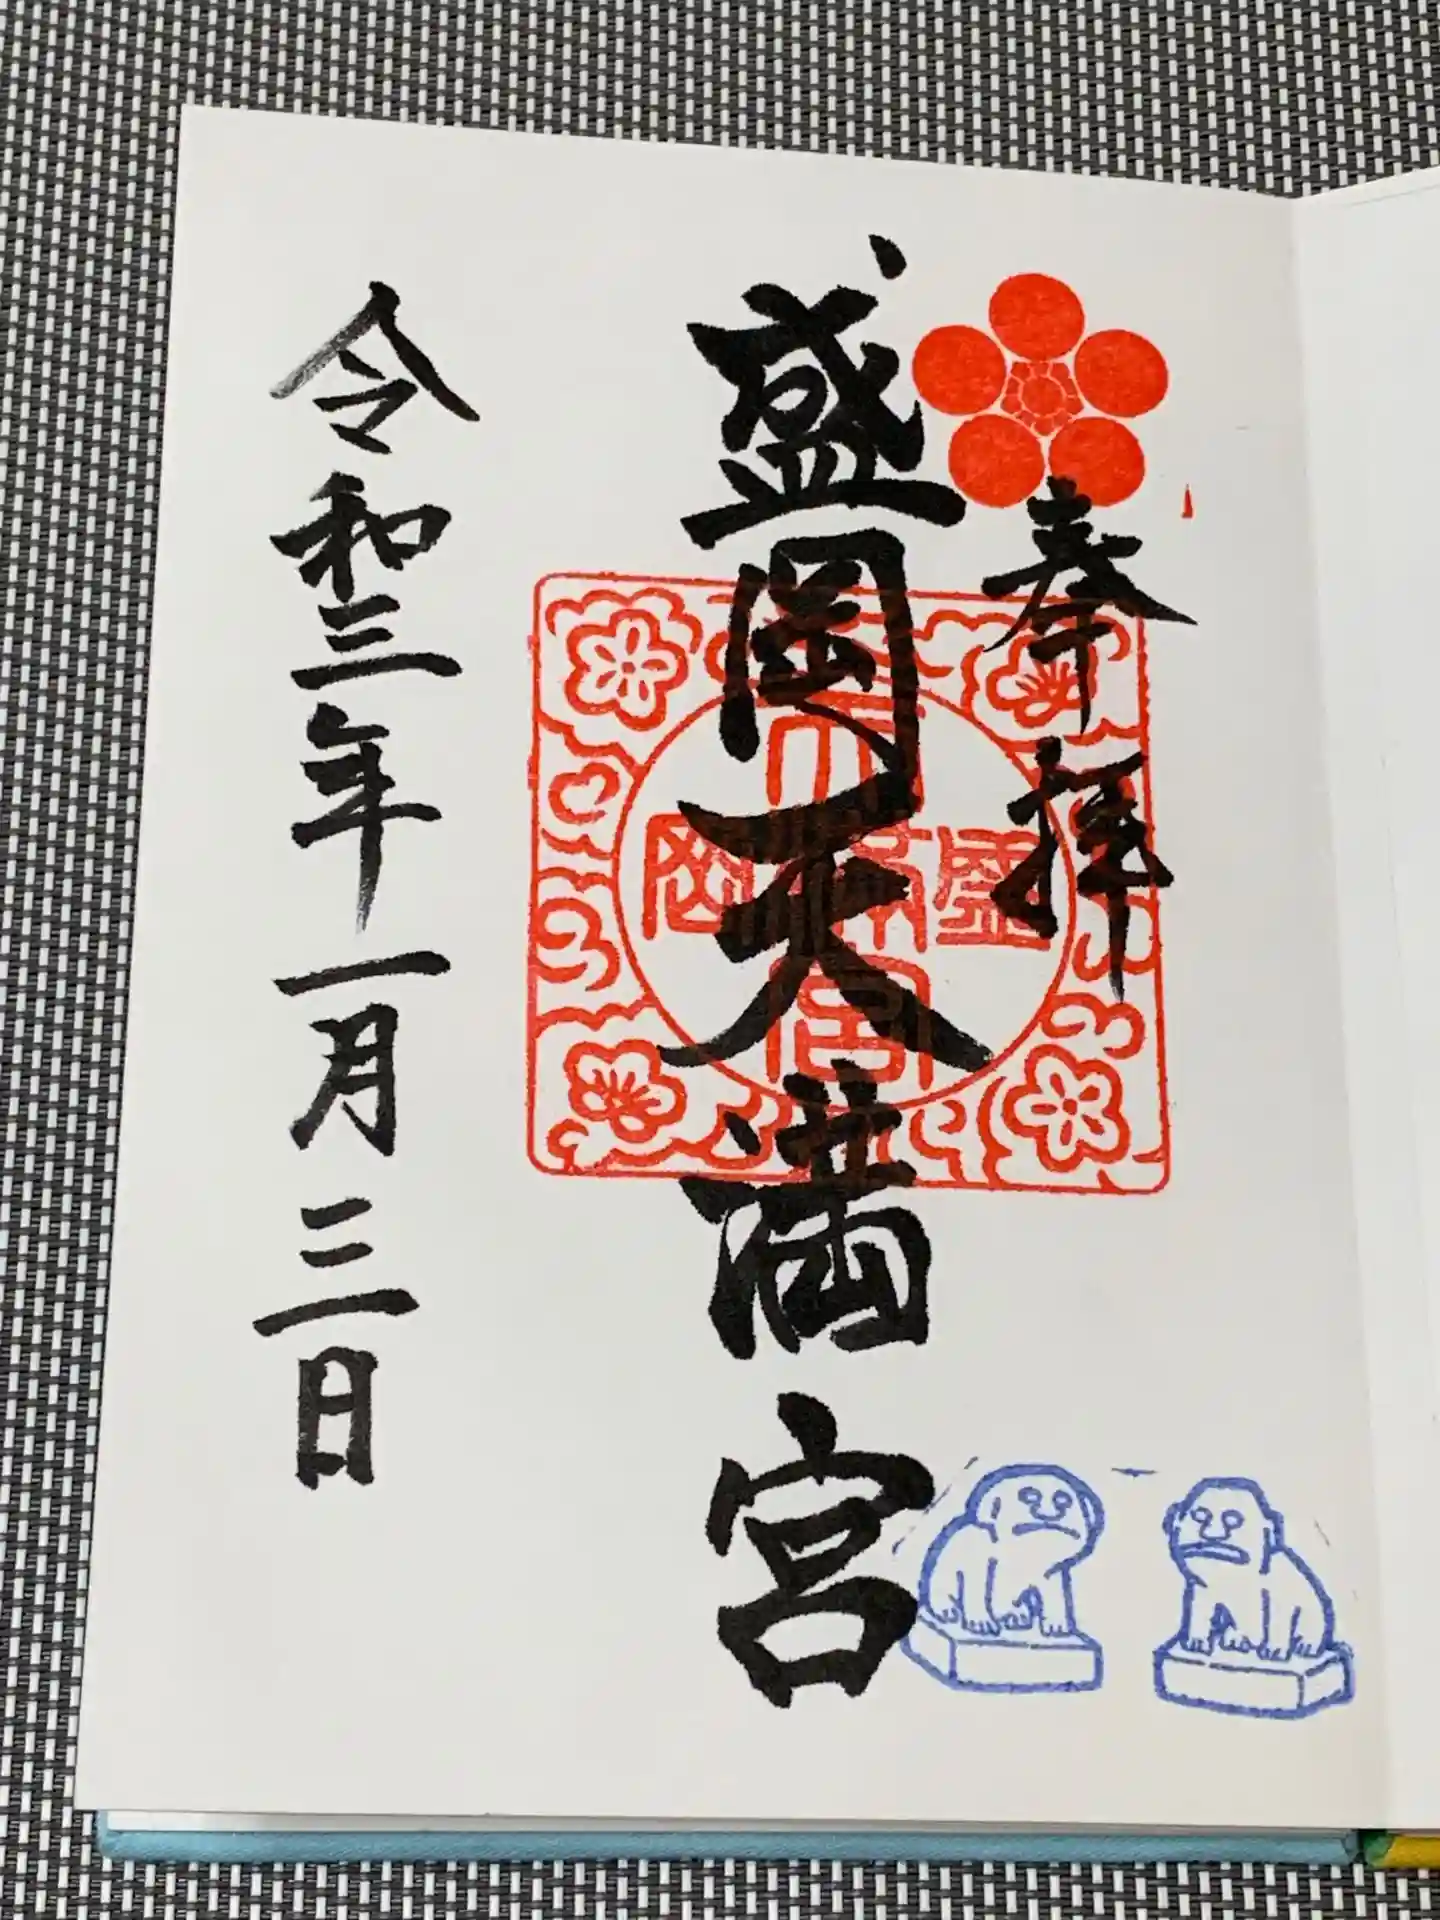 奉拝
盛岡天満宮
令和三年一月三日
盛岡
天満宮